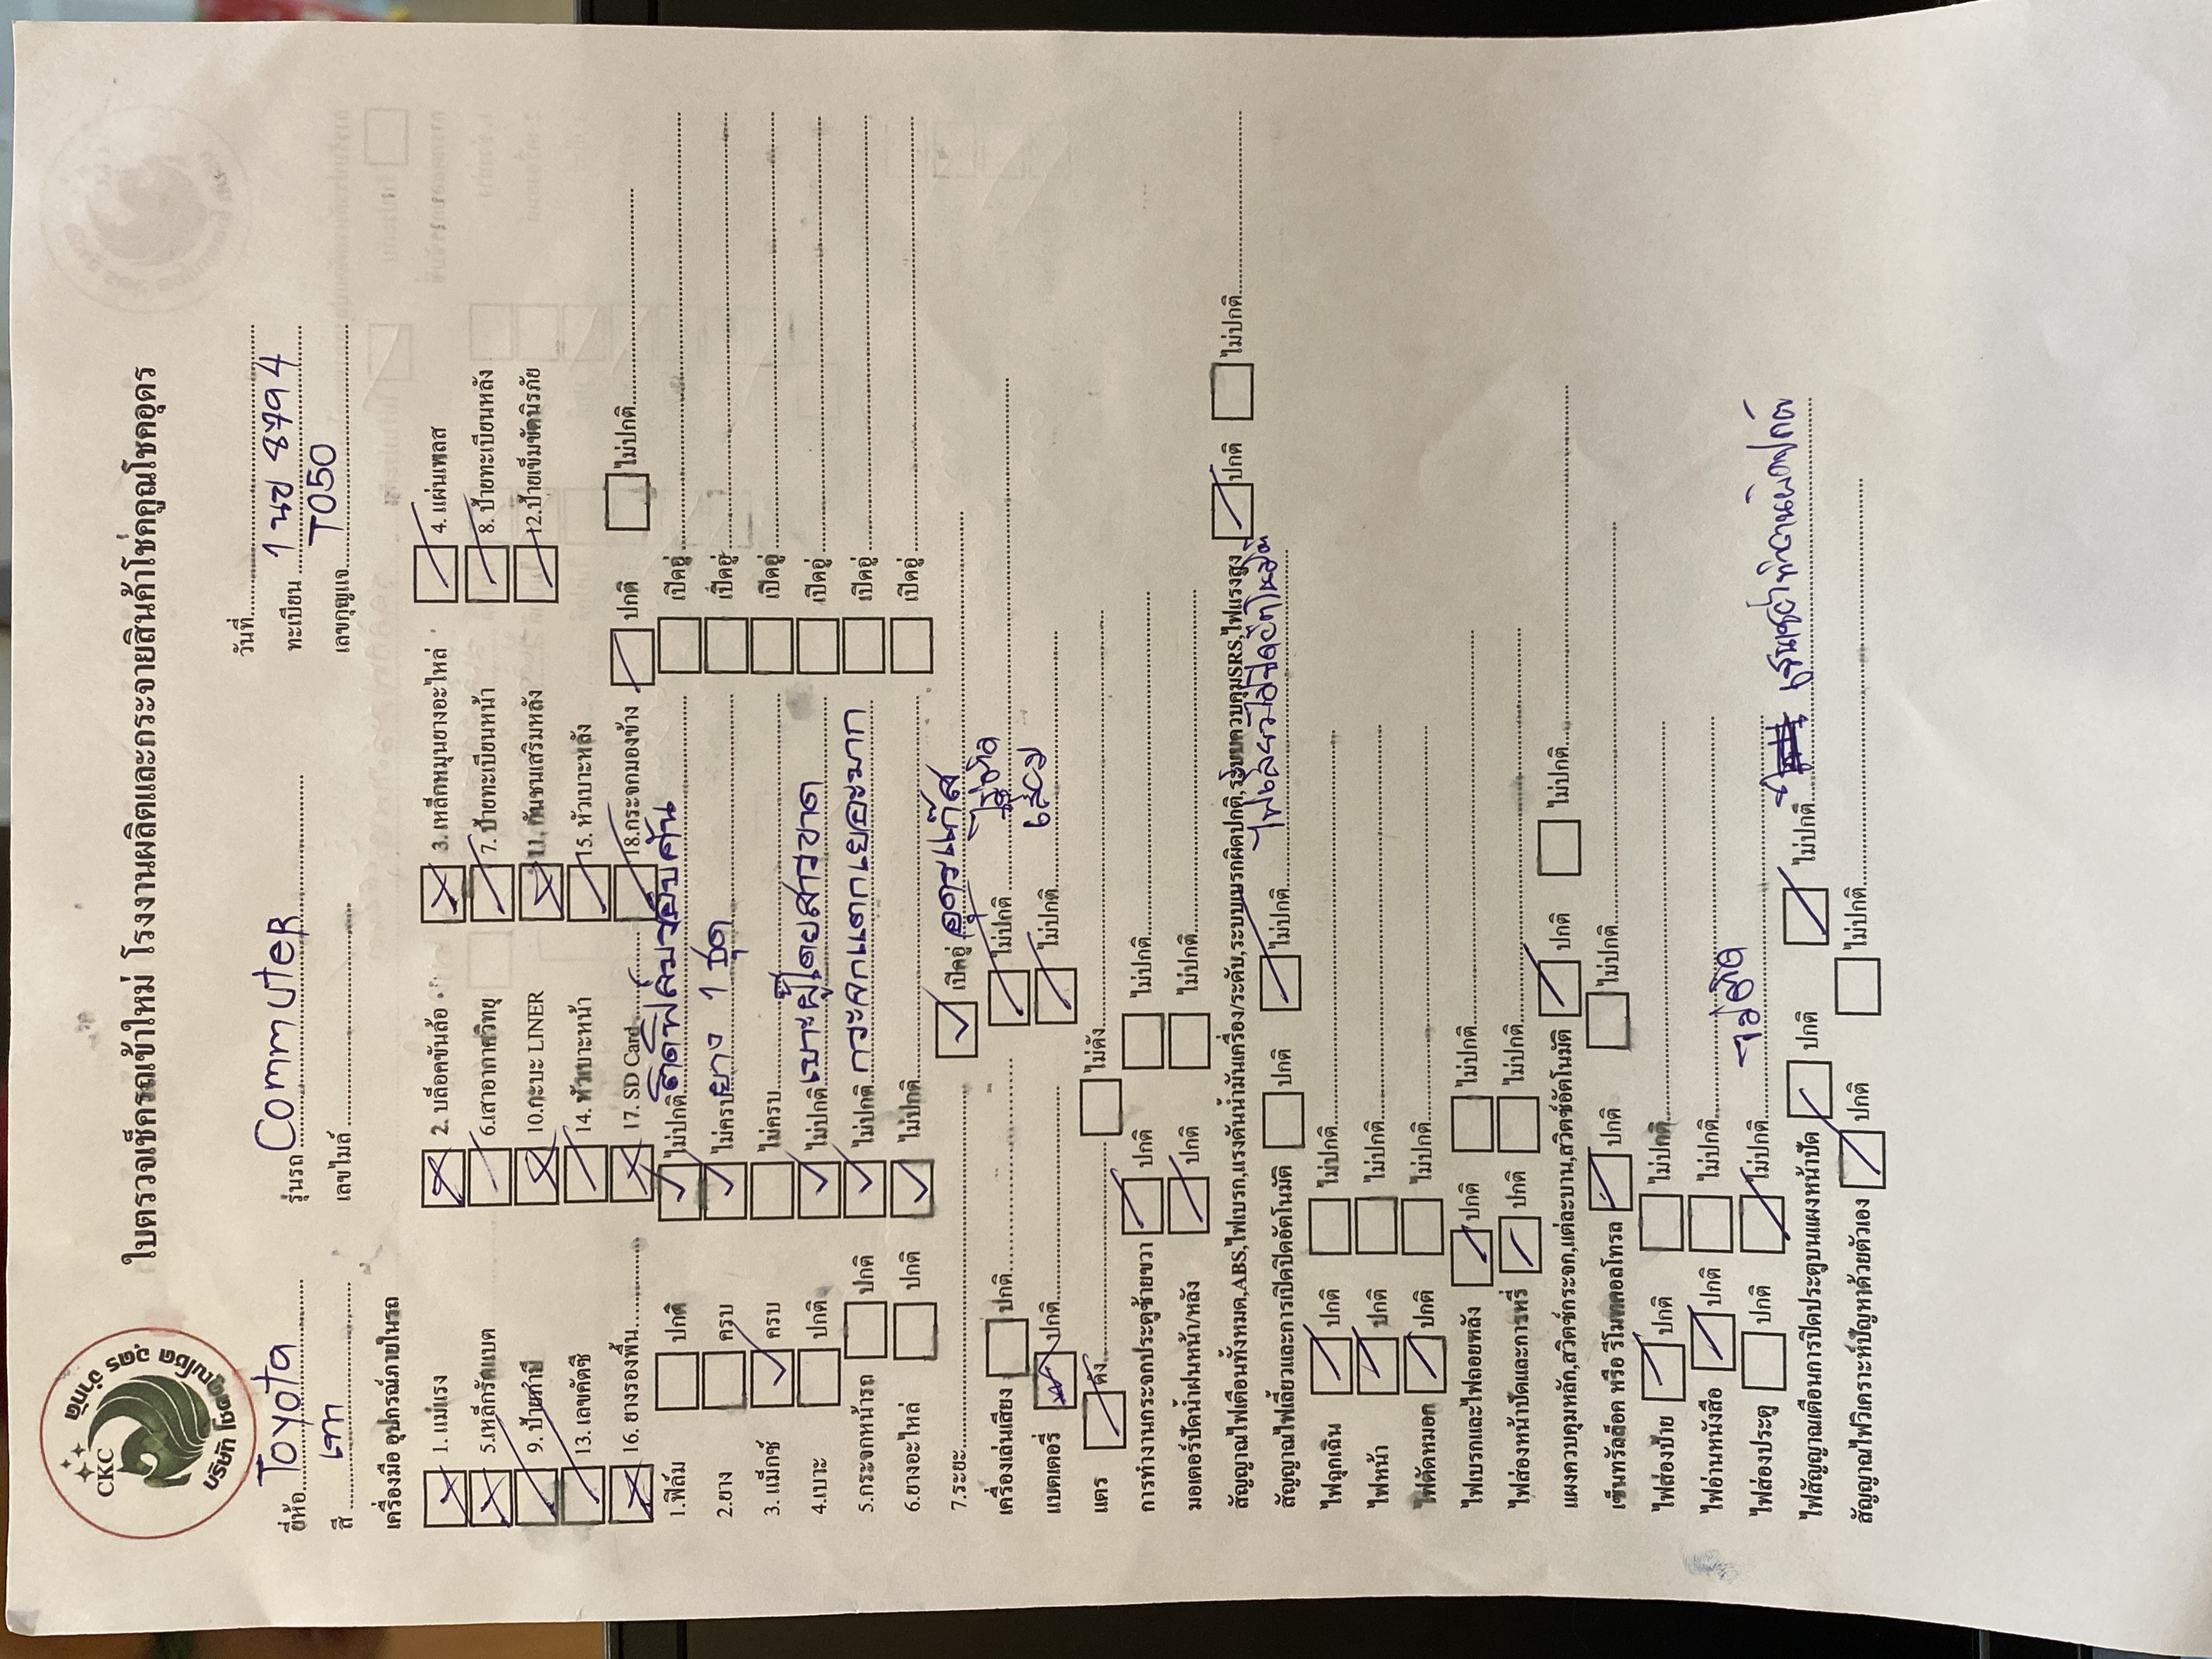 CKC
บริษัท โชคคูณโชค อุดร จำกัด
ใบตรวจเช็ครถเข้าใหม่ โรงงานผลิตและกระจายสินค้าโชคคูณโชคอุดร
วันที่
ยี่ห้อ Toyota รุ่นรถ Commuter ทะเบียน 1 นช 8794
สี เทา เลขไมล์ เลขกุญแจ T050
เครื่องมือ อุปกรณ์ภายในรถ
1. แม่แรง 2. บล็อคขันล้อ 3. เหล็กหมุนยางอะไหล่ 4. แผ่นเพลส
5.เหล็กกรัดแบต 6.เสาอากาศวิทยุ 7. ป้ายทะเบียนหน้า 8. ป้ายทะเบียนหลัง
9. ป้ายภาษี 10.กะบะ LINER 11. กันชนเสริมหลัง 12.ป้ายเข็มขัดนิรภัย
13. เลขคัตซี 14. หัวเบาะหน้า 15. หัวเบาะหลัง
16. ยางรองพื้น 17. SD Card 18.กระจกมองข้าง ปกติ ไม่ปกติ
1.ฟิล์ม ปกติ ไม่ปกติ ติดฟิล์มรอบคัน เปิดอู่
2.ยาง ครบ ไม่ครบ ยาง 1 ชุด เปิดอู่
3. แม็กซ์ ครบ ไม่ครบ เปิดอู่
4.เบาะ ปกติ ไม่ปกติ เบาะผู้โดยสารขาด เปิดอู่
5.กระจกหน้ารถ ปกติ ไม่ปกติ กระจกแตกเยอะมาก เปิดอู่
6.ยางอะไหล่ ปกติ ไม่ปกติ เปิดอู่
7.ระยะ เปิดอู่
เครื่องเล่นเสียง ปกติ ไม่ปกติ
แบตเตอรี่ ปกติ ไม่ปกติ เสื่อม
แตร ดัง ไม่ดัง
การทำงานกระจกประตูซ้ายขวา ปกติ ไม่ปกติ
มอเตอร์ปัดน้ำฝนหน้า/หลัง ปกติ ไม่ปกติ
สัญญาณไฟเตือนทั้งหมด,ABS,ไฟเบรก,แรงดันน้ำมันเครื่อง/ระดับ,ระบบเบรกผิดปกติ,ระบบควบคุมSRS,ไฟแรงสูง ปกติ ไม่ปกติ
สัญญาณไฟเลี้ยวและการเปิดปิดอัตโนมัติ ปกติ ไม่ปกติ
ไฟฉุกเฉิน ปกติ ไม่ปกติ
ไฟหน้า ปกติ ไม่ปกติ
ไฟตัดหมอก ปกติ ไม่ปกติ
ไฟเบรกและไฟถอยหลัง ปกติ ไม่ปกติ
ไฟส่องหน้าปัดและการหรี่ ปกติ ไม่ปกติ
แผงควบคุมหลัก,สวิตช์กระจก,แต่ละบาน,สวิตซ์อัตโนมัติ ปกติ ไม่ปกติ
เซ็นทรัลล็อค หรือ รีโมทคอลโทรล ปกติ ไม่ปกติ
ไฟส่องป้าย ปกติ ไม่ปกติ
ไฟอ่านหนังสือ ปกติ ไม่ปกติ
ไฟส่องประตู ปกติ ไม่ปกติ ไม่ติด
ไฟสัญญาณเตือนการปิดประตูบนแผงหน้าปัด ปกติ ไม่ปกติ
สัญญาณไฟวิเคราะห์ปัญหาด้วยตัวเอง ปกติ ไม่ปกติ